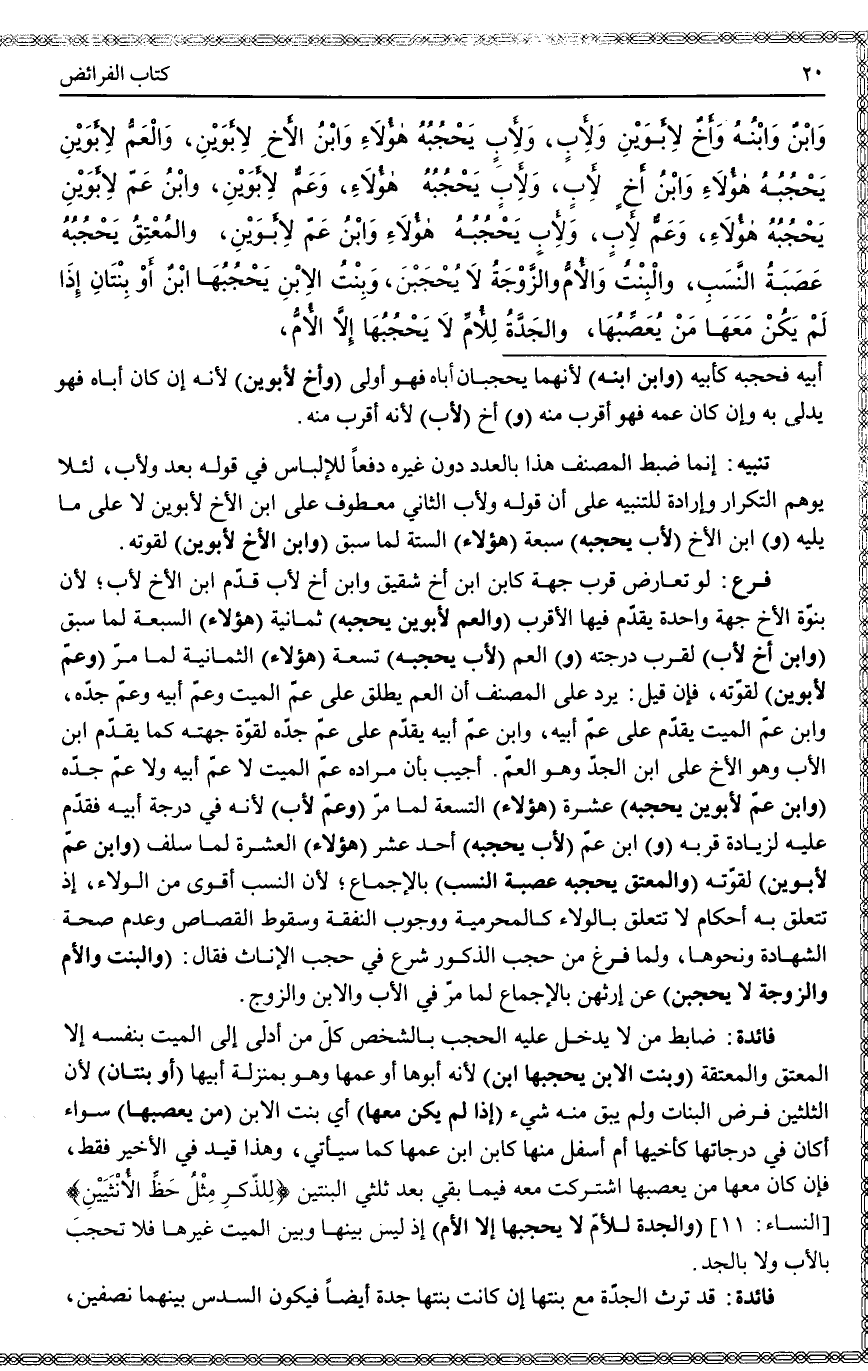 ٢٠ كتاب الفرائض
وَابْنٌ وَابْنُـهُ وَأَخٌ لِأَبَـوَيْنِ وَلِأَبٍ، وَلِأَبٍ يَحْجُبُهُ هٰؤُلَاءِ وَابْنُ الْأَخِ لِأَبَوَيْنِ، وَالْعَمُّ لِأَبَوَيْنِ
يَحْجُبُـهُ هٰؤُلَاءِ وَابْنُ أَخٍ لِأَبٍ، وَلِأَبٍ يَحْجُبُهُ هٰؤُلَاءِ، وَعَمٌّ لِأَبَوَيْنِ، وابْنُ عَمّ لِأَبَوَيْنِ
يَحْجُبُهُ هٰؤُلَاءِ، وَعَمٌّ لِأَبٍ، وَلِأَبٍ يَحْجُبُـهُ هٰؤُلَاءِ وَابْنُ عَمّ لِأَبَـوَيْنِ، والمُعْتِقُ يَحْجُبُهُ
عَصَبَـةُ النَّسَبِ، والْبِنْتُ وَالْأُمُّ والزَّوْجَةُ لَا يُحْجَبْنَ، وَبِنْتُ الِابْنِ يَحْجُبُهَـا ابْنٌ أَوْ بِنْتَانِ إِذَا
لَمْ يَكُنْ مَعَهَـا مَنْ يُعَصِّبُهَا، والجَدَّةُ لِلْأُمِّ لَا يَحْجُبُهَا إِلَّا الْأُمُّ،
أبيه فحجبه كأبيه (وابن ابنه) لأنهما يحجبان أباه فهـو أولى (وأخ لأبوين) لأنـه إن كان أبـاه فهو
يدلى به وإن كان عمه فهو أقرب منه (و) أخ (لأب) لأنه أقرب منه.
تنبيه: إنما ضبط المصنف هذا بالعدد دون غيره دفعاً للإلبـاس في قولـه بعد ولأب، لئـلا
يوهم التكرار وإرادة للتنبيه على أن قولـه ولأب الثاني معـطوف على ابن الأخ لأبوين لا على مـا
يليه (و) ابن الأخ (لأب يحجبه) سبعة (هؤلاء) الستة لما سبق (وابن الأخ لأبوين) لقوته.
فـرع: لو تعـارض قرب جهـة كابن ابن أخ شقيق وابن أخ لأب قـدّم ابن الأخ لأب؛ لأن
بنوّة الأخ جهة واحدة يقدّم فيها الأقرب (والعم لأبوين يحجبه) ثمـانية (هؤلاء) السبعـة لما سبق
(وابن أخ لأب) لقـرب درجته (و) العم (لأب يحجبـه) تسعـة (هؤلاء) الثمـانيـة لمـا مـرّ (وعمّ
لأبوين) لقوّته، فإن قيل: يرد على المصنف أن العم يطلق على عمّ الميت وعمّ أبيه وعمّ جدّه،
وابن عمّ الميت يقدّم على عمّ أبيه، وابن عمّ أبيه يقدّم على عمّ جده لقوّة جهتـه كما يقـدّم ابن
الأب وهو الأخ على ابن الجدّ وهـو العمّ. أجيب بأن مـراده عمّ الميت لا عمّ أبيه ولا عمّ جـدّه
(وابن عمّ لأبوين يحجبه) عشـرة (هؤلاء) التسعة لمـا مرّ (وعمّ لأب) لأنـه في درجة أبيـه فقدّم
عليـه لزيـادة قربـه (و) ابن عمّ (لأب يحجبه) أحـد عشر (هؤلاء) العشـرة لمـا سلف (وابن عمّ
لأبـوين) لقوّتـه (والمعتق يحجبه عصبـة النسب) بالإجمـاع؛ لأن النسب أقـوى من الـولاء، إذ
تتعلق بـه أحكام لا تتعلق بـالولاء كـالمحرميـة ووجوب النفقـة وسقوط القصـاص وعدم صحـة
الشهـادة ونحوهـا، ولما فـرغ من حجب الذكـور شرع في حجب الإنـاث فقال: (والبنت والأم
والزوجة لا يحجبن) عن إرثهن بالإجماع لما مرّ في الأب والابن والزوج.
فائدة: ضابط من لا يدخـل عليه الحجب بـالشخص كلّ من أدلى إلى الميت بنفسـه إلا
المعتق والمعتقة (وبنت الابن يحجبها ابن) لأنه أبوها أو عمها وهـو بمنزلـة أبيها (أو بنتـان) لأن
الثلثين فـرض البنات ولم يبق منـه شيء (إذا لم يكن معها) أي بنت الابن (من يعصبهـا) سـواء
أكان في درجاتها كأخيها أم أسفل منها كابن ابن عمها كما سيـأتي، وهذا قيـد في الأخير فقط،
فإن كان معها من يعصبها اشتـركت معه فيمـا بقي بعد ثلثي البنتين ﴿لِلذَّكـرِ مِثْلُ حَظِّ الْأُنْثَيَيْنِ﴾
[النسـاء: ١١] (والجدة لـلأمّ لا يحجبها إلا الأم) إذ ليس بينهـا وبين الميت غيرهـا فلا تحجبَ
بالأب ولا بالجد.
فائدة: قد ترث الجدّة مع بنتها إن كانت بنتها جدة أيضـاً فيكون السدس بينهما نصفين،